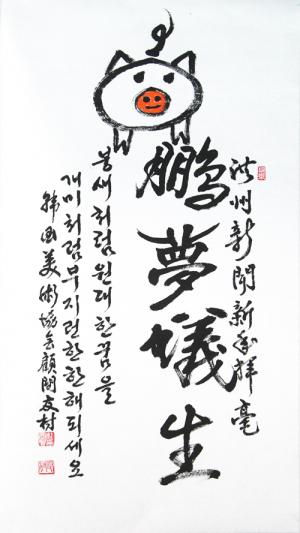 洪州新聞新年揮毫
鵬夢蟻生
붕새처럼 원대한 꿈을
개미처럼 부지런한 한해 되세요
韓国美術協会顧問 友村